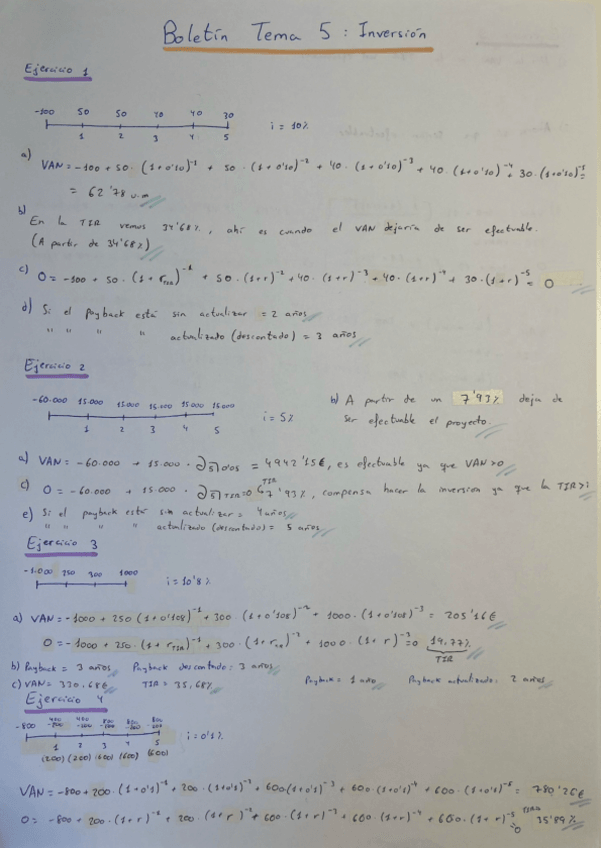 Boletín Tema 5 : Inversión
Ejercicio 1
-100 50 50 40 40 30
1 2 3 4 5
i = 10%
a) VAN = -100 + 50 · (1+0'10)⁻¹ + 50 · (1+0'10)⁻² + 40 · (1+0'10)⁻³ + 40 · (1+0'10)⁻⁴ + 30 · (1+0'10)⁻⁵ =
= 62'78 u.m
b) En la TIR vemos 34'68%, ahí es cuando el VAN dejaría de ser efectuable.
(A partir de 34'68%)
c) 0 = -100 + 50 · (1+r_TIR)⁻¹ + 50 · (1+r)⁻² + 40 · (1+r)⁻³ + 40 · (1+r)⁻⁴ + 30 · (1+r)⁻⁵ = 0
d) Si el payback está sin actualizar = 2 años
" " " " actualizado (descontado) = 3 años
Ejercicio 2
-60.000 15.000 15.000 15.000 15.000 15.000
1 2 3 4 5
i = 5%
b) A partir de un 7'93% deja de
ser efectuable el proyecto.
a) VAN = -60.000 + 15.000 · a5|0'05 = 4942'15€, es efectuable ya que VAN>0
c) 0 = -60.000 + 15.000 · a5|TIR = 0 TIR 7'93%, compensa hacer la inversión ya que la TIR>i
e) Si el payback está sin actualizar = 4 años
" " " " actualizado (descontado) = 5 años
Ejercicio 3
-1.000 250 300 1000
i = 10'8%
a) VAN = -1000 + 250 (1+0'108)⁻¹ + 300 · (1+0'108)⁻² + 1000 · (1+0'108)⁻³ = 205'16€
0 = -1000 + 250 · (1+r_TIR)⁻¹ + 300 · (1+r_TIR)⁻² + 1000 · (1+r)⁻³ = 0 19,77%
TIR
b) Payback = 3 años Payback descontado: 3 años
c) VAN = 330,68€ TIR = 35,68% Payback = 1 año Payback actualizado: 2 años
Ejercicio 4
-800 400 400 800 800 800
-200 -200 -200 -200 -200
1 2 3 4 5
(200) (200) (600) (600) (600)
i = 0'1%
VAN = -800 + 200 · (1+0'1)⁻¹ + 200 · (1+0'1)⁻² + 600 (1+0'1)⁻³ + 600 · (1+0'1)⁻⁴ + 600 · (1+0'1)⁻⁵ = 780'26€
0 = -800 + 200 · (1+r)⁻¹ + 200 · (1+r)⁻² + 600 · (1+r)⁻³ + 600 · (1+r)⁻⁴ + 600 · (1+r)⁻⁵ = 0 35'89%